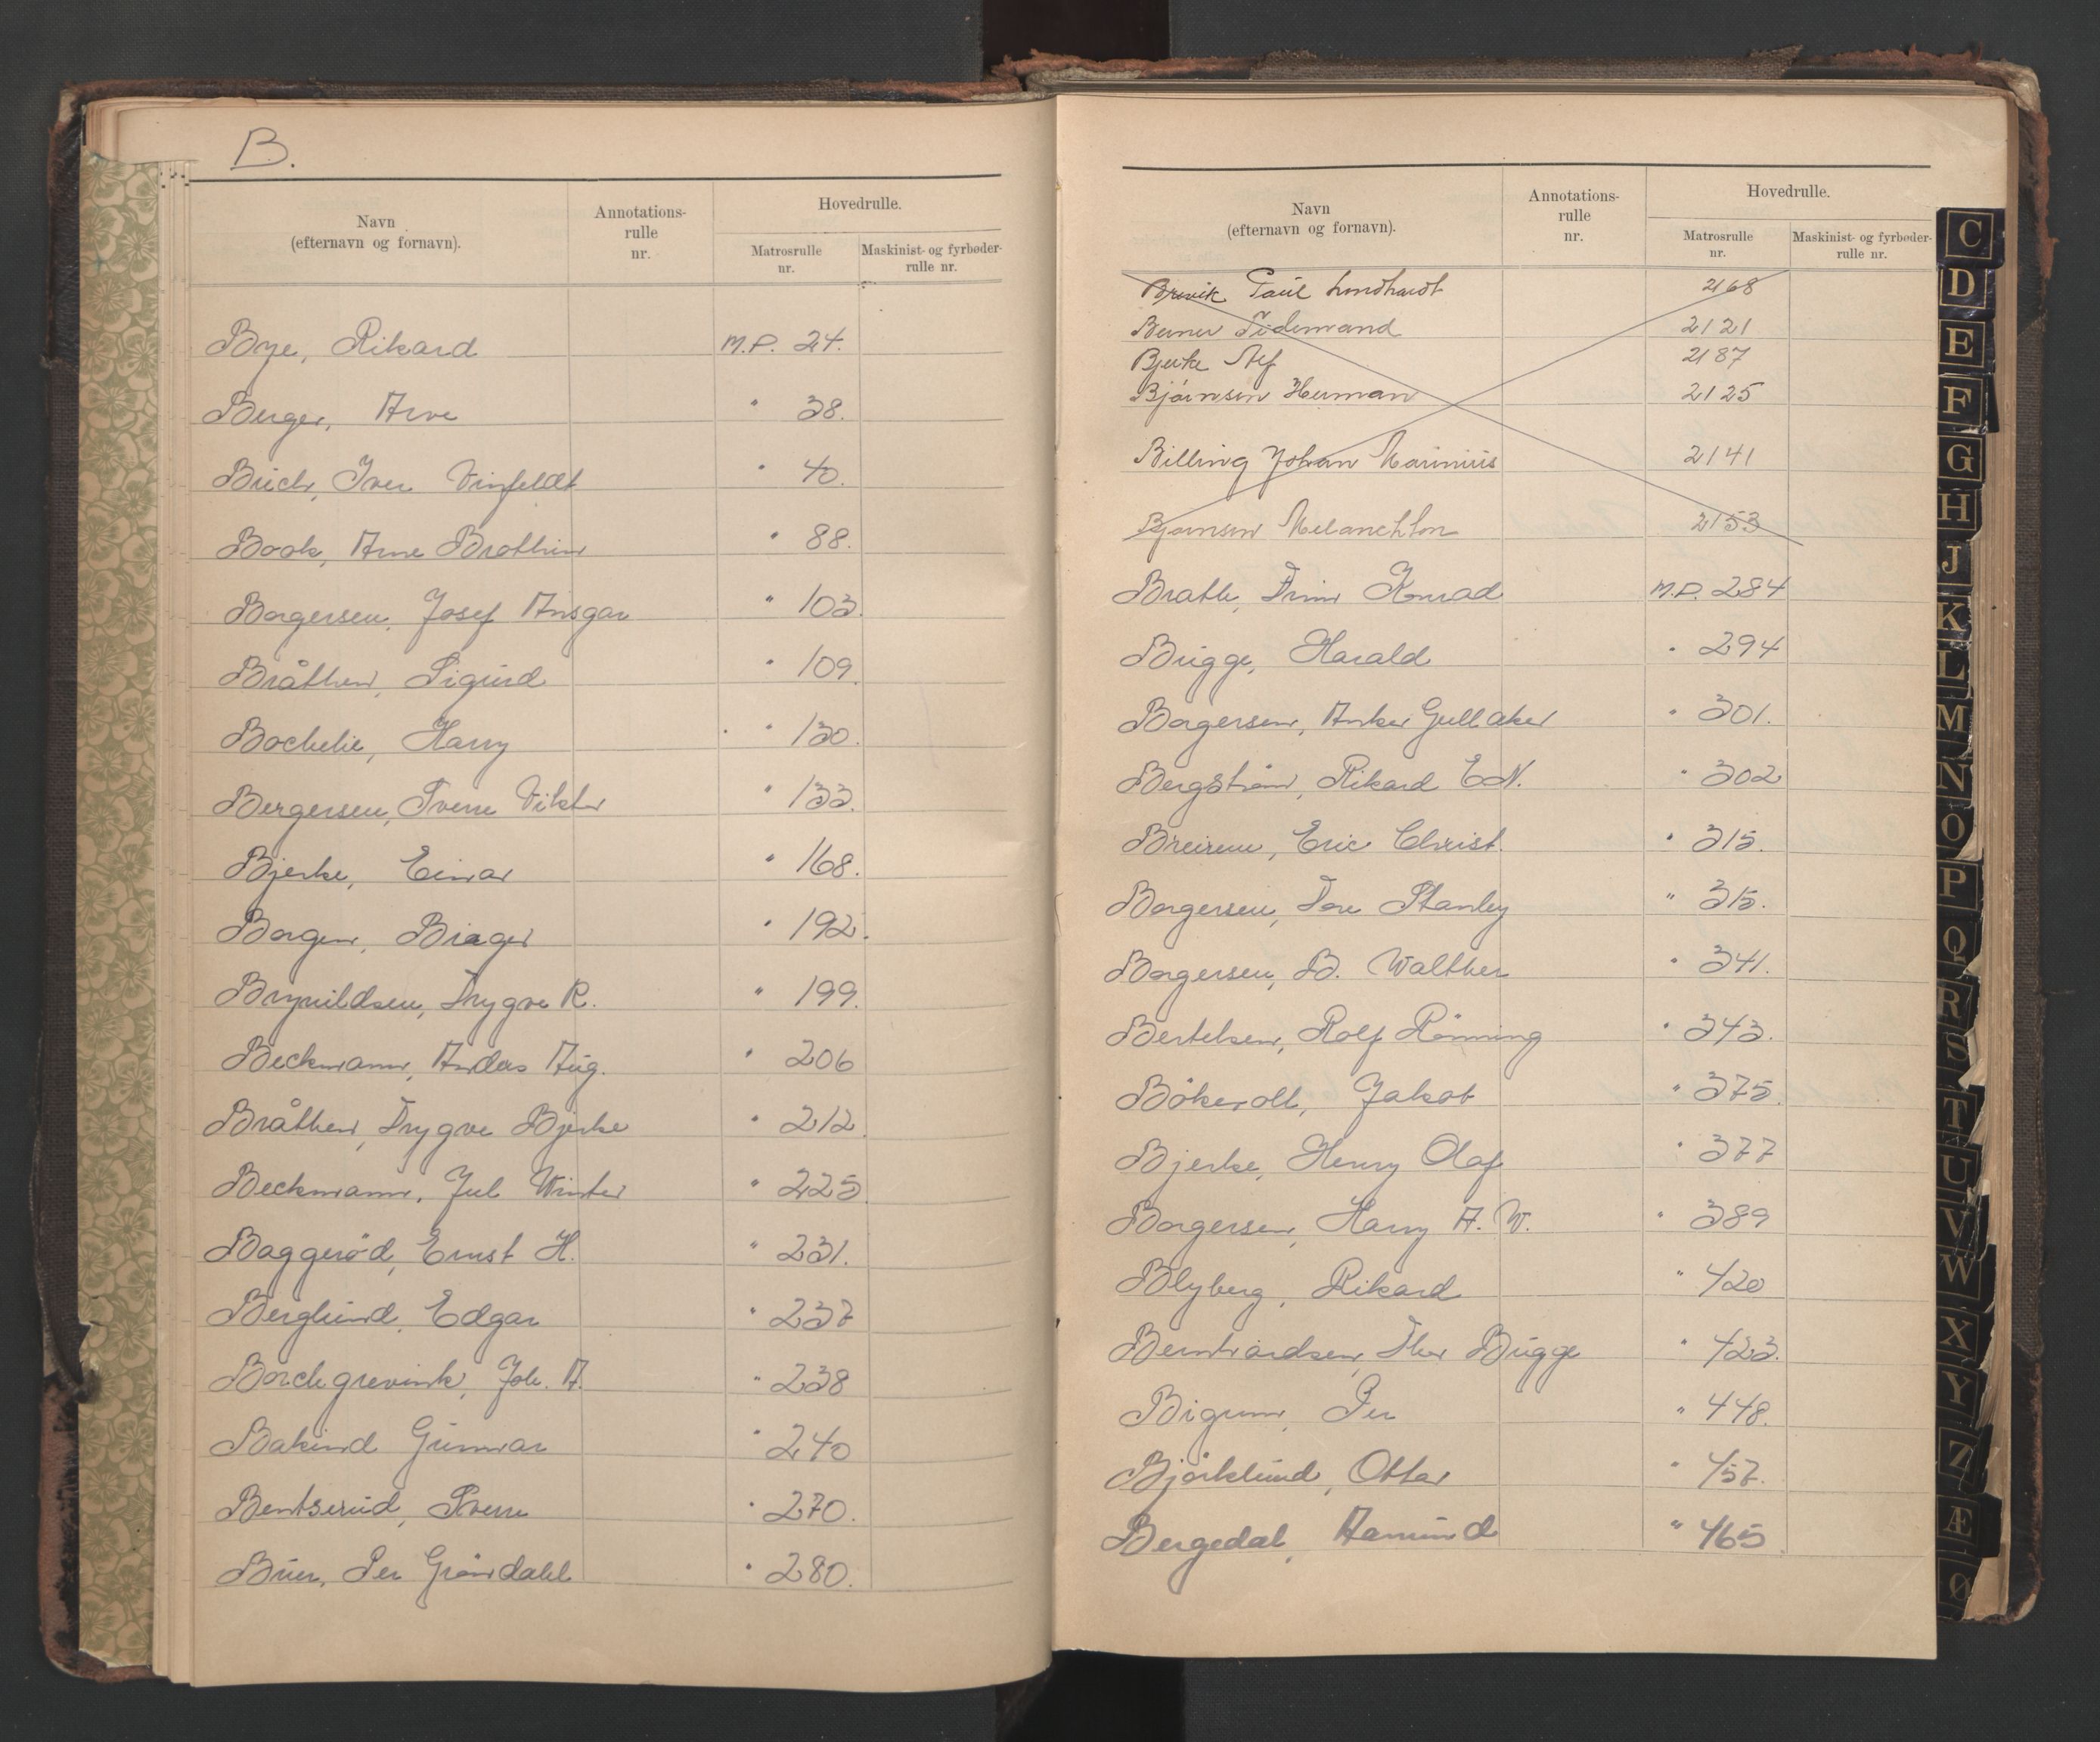 B.
Navn
(efternavn og fornavn).
Annotations-
rulle
nr.
Hovedrulle.
Matrosrulle
nr.
Maskinist- og fyrbøder-
rulle nr.
Bye, Rikard M.P. 24.
Berger, Arve " 38.
Buch, Iver Vinfeldt " 40.
Book, Arne Brothen " 88.
Borgersen, Josef Ansgar " 103.
Bråthen, Sigurd " 109.
Bochelie, Harry " 130.
Bergersen, Sverre Viktor " 133.
Bjerke, Einar " 168.
Borgen, Birger " 192.
Brynildsen, Trygve R. " 199.
Beckmann, Andas Aug. " 206
Bråthen, Trygve Bjerke " 212
Beckmann, Jul Winter " 225
Baggeröd, Ernst H. " 231.
Berglund, Edgar " 237
Borchgrevink, Joh. A. " 238
Bakind Gunnar " 240
Bentserud, Sverre " 270.
Buer, Per Gröndahl " 280.
Navn
(efternavn og fornavn).
Annotations-
rulle
nr.
Hovedrulle.
Matrosrulle
nr.
Maskinist- og fyrbøder-
rulle nr.
Brevik Paul Londhardt 2168
Berner Tidemand 2121
Bjerke Alf 2187
Bjørnsen Herman 2125
Billing Johan Marinius 2141
Bjørnsen Melanchton 2153
Brathe, Finn Konrad M.P. 284
Brigge, Harald " 294
Borgersen, Anker Gullaker " 301.
Bergström, Rikard E.N. " 302
Breiren, Eric Christ. " 315.
Borgersen, Tore Stanley " 315.
Borgersen, B. Walther " 341.
Bertelsen, Rolf Rönning " 343.
Bökevoll, Jakob " 375.
Bjerke, Henry Olaf " 377
Borgersen, Harry A. W. " 389
Blyberg, Rikard " 420
Berntrardsen, Thor Bugge " 423.
Bigum, Per " 448.
Björklund, Ottar " 457.
Bergedal, Aamund " 465.
C
D
E
F
G
H
J
K
L
M
N
O
P
Q
R
S
T
U
V
W
X
Y
Z
Æ
Ø